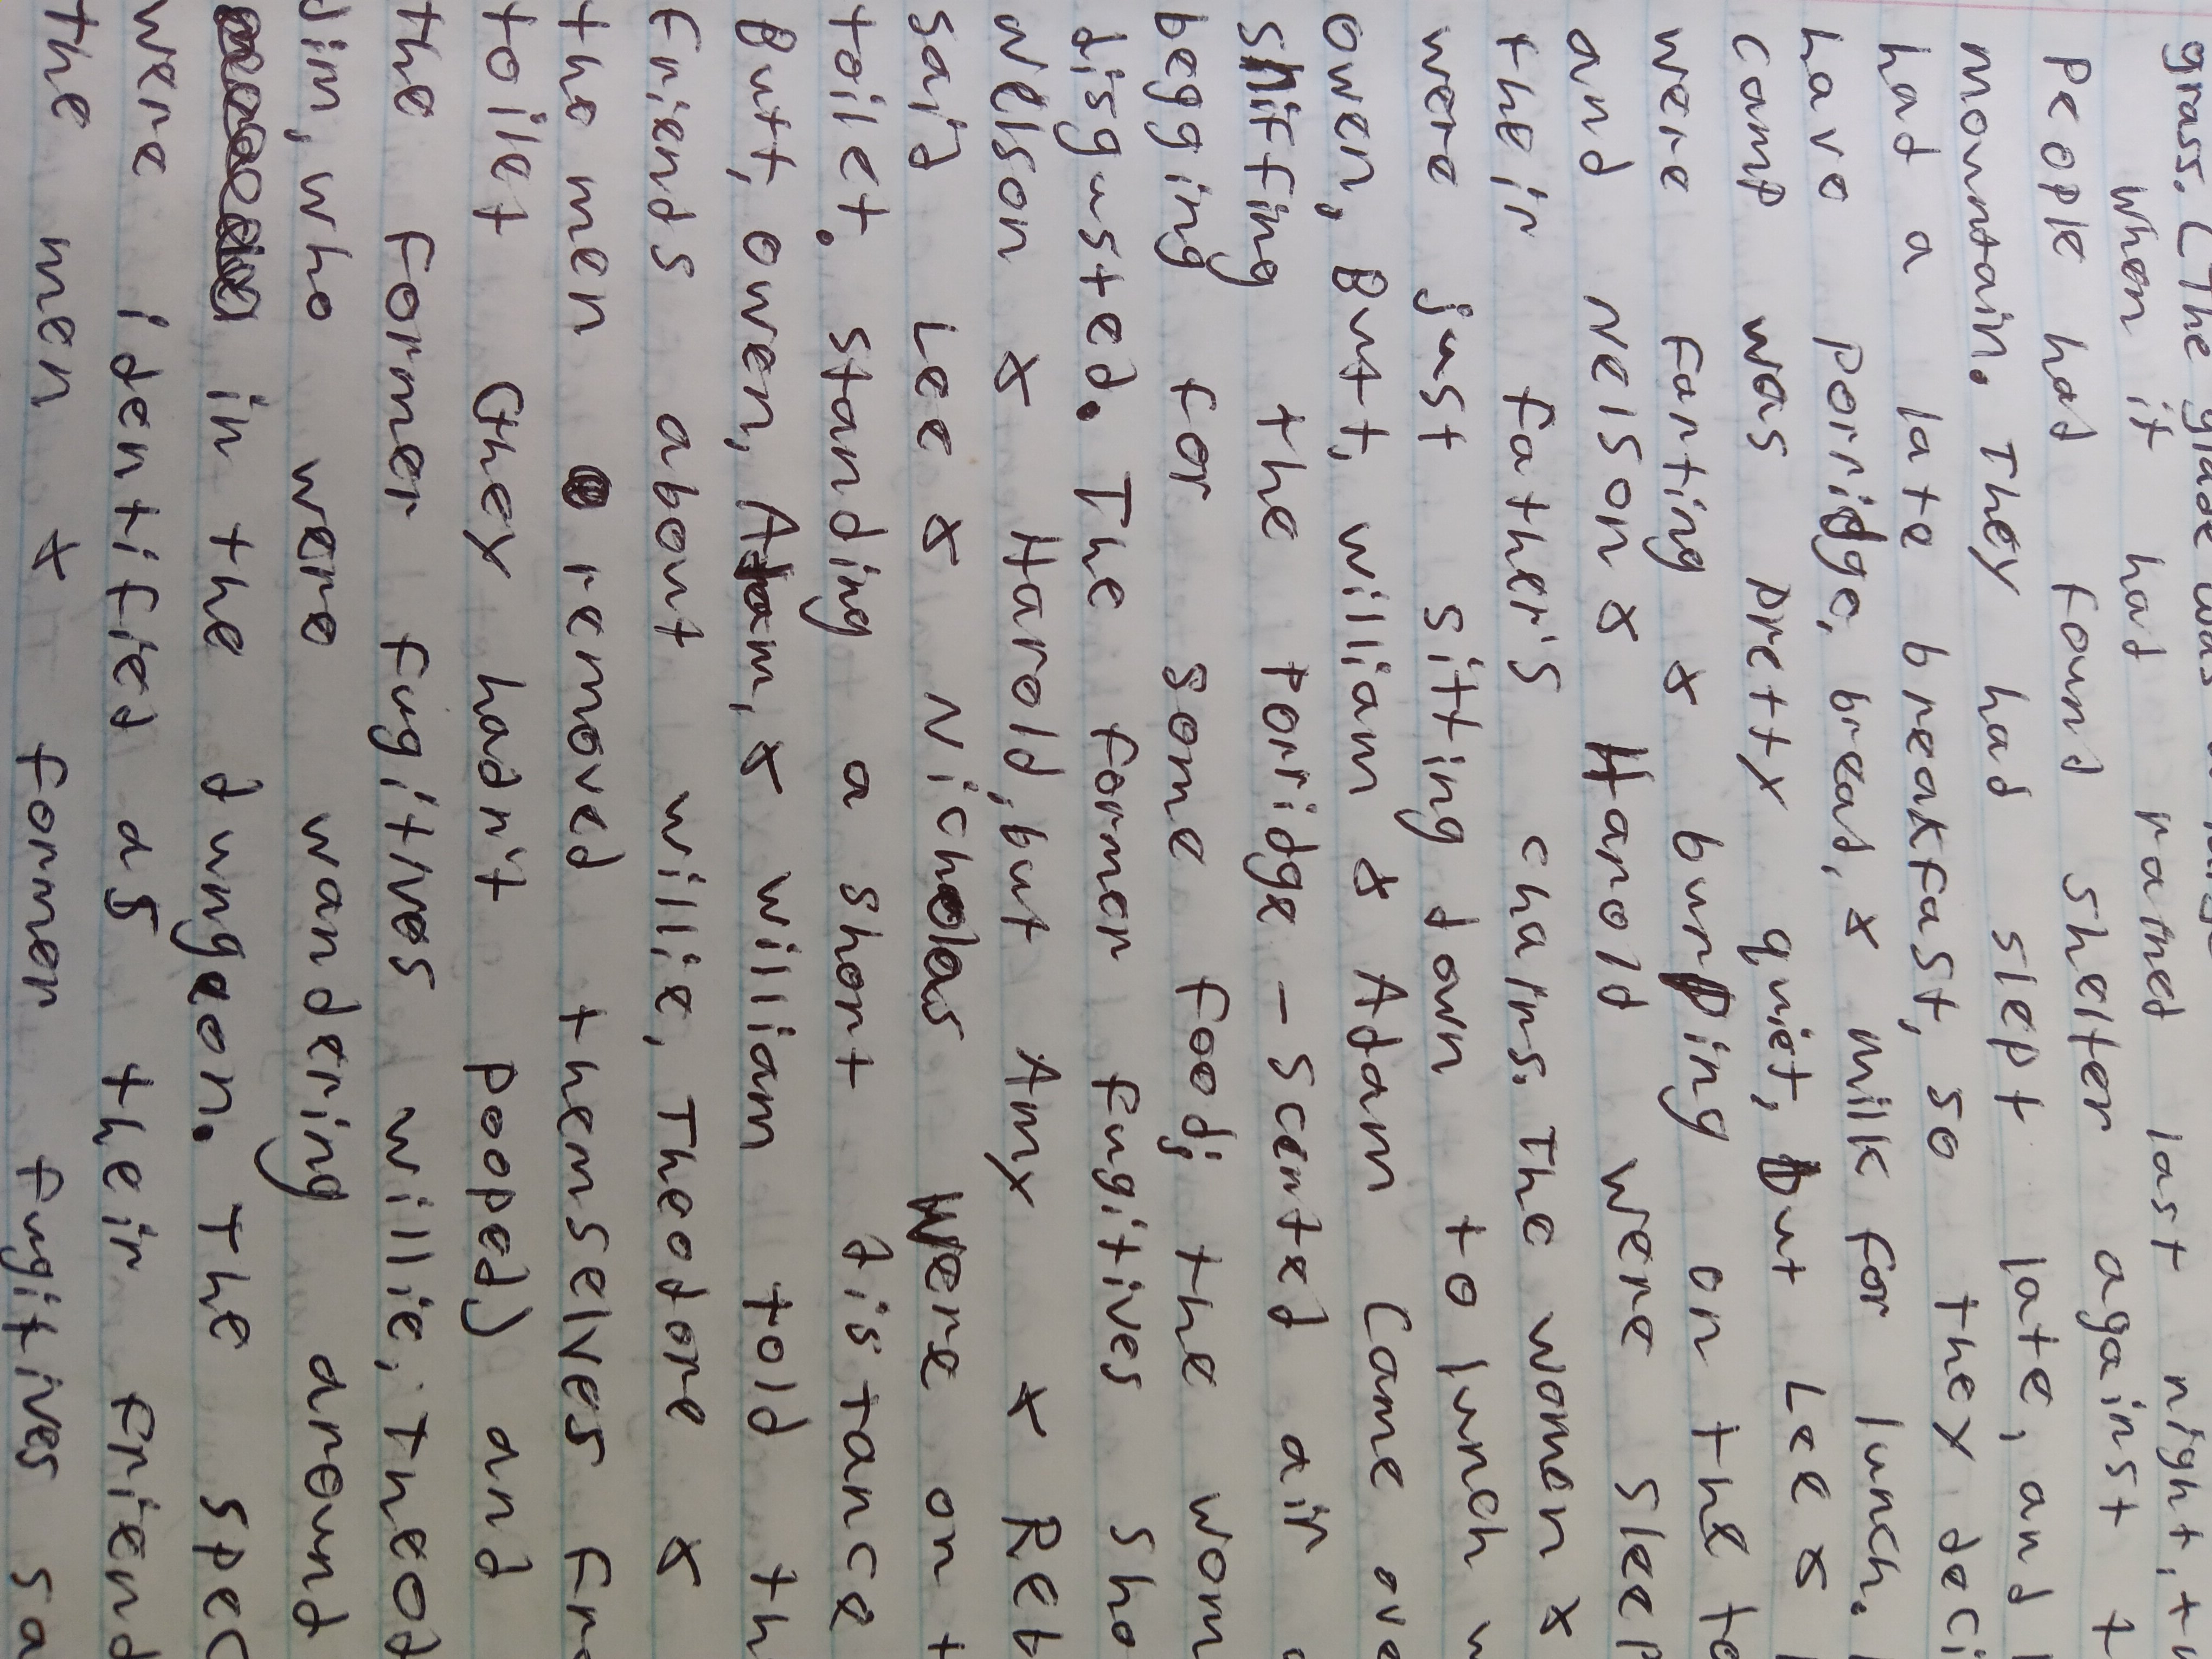 grass. (The glade was
When it had rained last night, t
people had found shelter against t
mountain. They had slept late, and
had a late breakfast, so they deci
have porridge, bread, & milk for lunch.
camp was pretty quiet, but Lee &
were farting & burping on the to
and Nelson & Harold were sleep
their father's chairs. The women &
were just sitting down to lunch w
Owen, But, William & Adam came ove
sniffing the porridge-scented air
begging for some food; the wom
disgusted. The former fugitives sho
Nelson & Harold, but Amy & Reb
said Lee & Nicholas were on t
toilet. standing a short distance
But, Owen, Adam, & William told th
friends about Willie, Theodore &
the men removed themselves fro
toilet (they hadn't pooped) and
the former fugitives Willie, Theod
Jim, who were wandering around
in the dungeon. The spec
were identified as their friend
the men & former fugitives sa